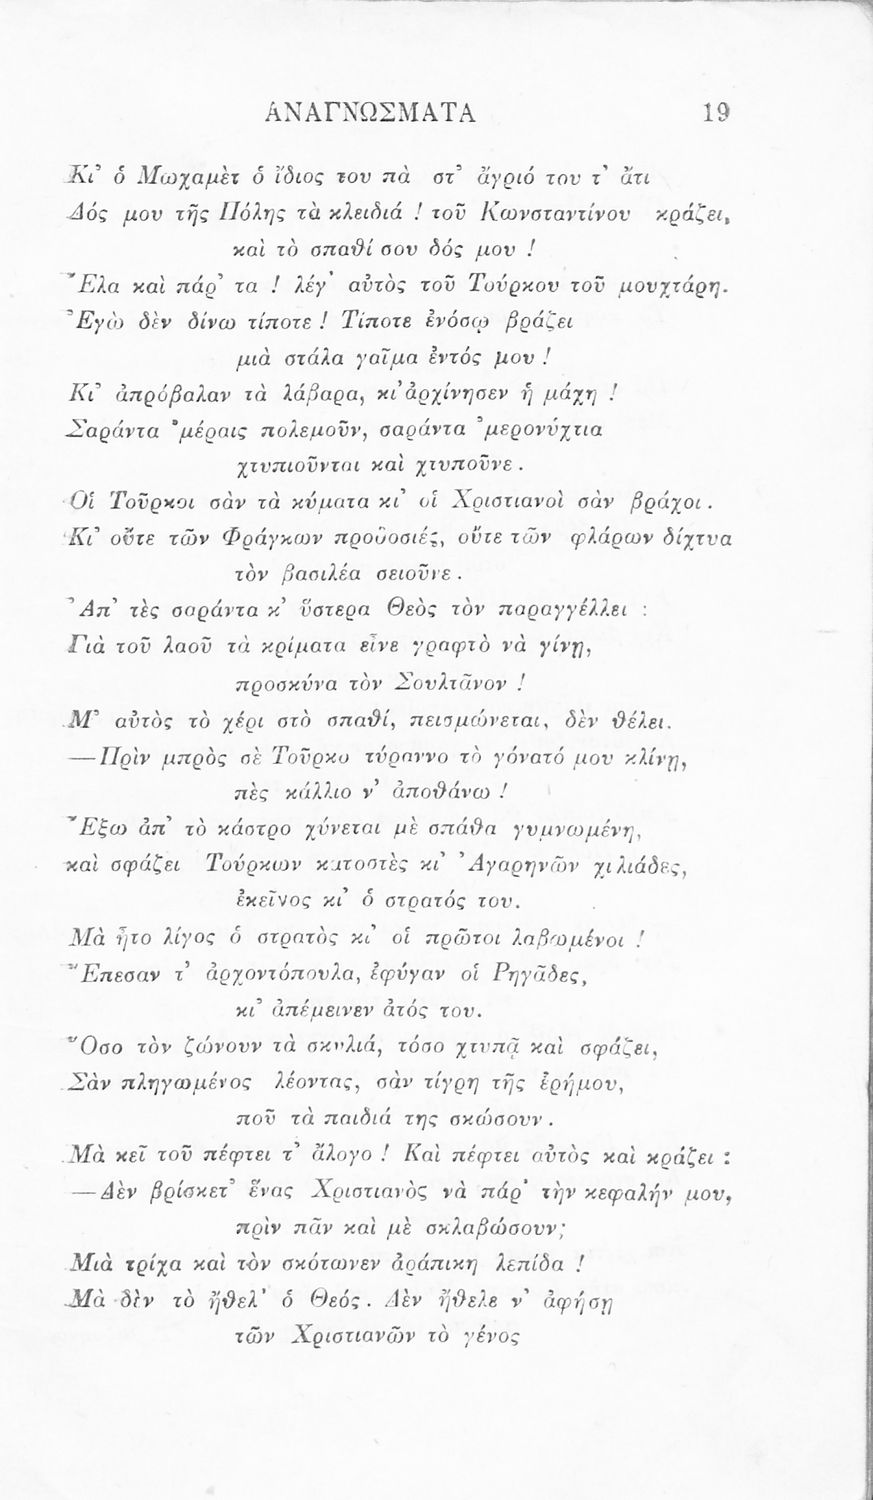 ΑΝΑΓΝΩΣΜΑΤΑ 19
Κι᾽ ὁ Μωχαμὲτ ὁ ἴδιος του πὰ στ᾽ ἄγριό του τ᾽ ἄτι
Δός μου τῆς Πόλης τὰ κλειδιά ! τοῦ Κωνσταντίνου κράζει,
καὶ τὸ σπαθί σου δός μου !
Ἔλα καὶ πάρ᾽ τα ! λέγ᾽ αὐτὸς τοῦ Τούρκου τοῦ μουχτάρη.
Ἐγὼ δὲν δίνω τίποτε ! Τίποτε ἐνόσῳ βράζει
μιὰ στάλα γαῖμα ἐντός μου !
Κι᾽ ἀπρόβαλαν τὰ λάβαρα, κι᾽ ἀρχίνησεν ἡ μάχη !
Σαράντα ᾽μέραις πολεμοῦν, σαράντα ᾽μερονύχτια
χτυπιοῦνται καὶ χτυποῦνε.
Οἱ Τοῦρκοι σὰν τὰ κύματα κι᾽ οἱ Χριστιανοὶ σὰν βράχοι.
Κι᾽ οὔτε τῶν Φράγκων προδοσιές, οὔτε τῶν φλάρων δίχτυα
τὸν βασιλέα σειοῦνε.
Ἀπ᾽ τὲς σαράντα κ᾽ ὕστερα Θεὸς τὸν παραγγέλλει :
Γιὰ τοῦ λαοῦ τὰ κρίματα εἶνε γραφτὸ νὰ γίνῃ,
προσκύνα τὸν Σουλτᾶνον !
Μ᾽ αὐτὸς τὸ χέρι στὸ σπαθί, πεισμώνεται, δὲν θέλει.
—Πρὶν μπρὸς σὲ Τοῦρκο τύραννο τὸ γόνατό μου κλίνῃ,
πὲς κάλλιο ν᾽ ἀποθάνω !
Ἔξω ἀπ᾽ τὸ κάστρο χύνεται μὲ σπάθα γυμνωμένη,
καὶ σφάζει Τούρκων κατοστὲς κι᾽ Ἀγαρηνῶν χιλιάδες,
ἐκεῖνος κι᾽ ὁ στρατός του.
Μὰ ἦτο λίγος ὁ στρατὸς κι᾽ οἱ πρῶτοι λαβωμένοι !
Ἔπεσαν τ᾽ ἀρχοντόπουλα, ἐφύγαν οἱ Ρηγᾶδες,
κι᾽ ἀπέμεινεν ἀτός του.
Ὅσο τὸν ζώνουν τὰ σκυλιά, τόσο χτυπᾷ καὶ σφάζει,
Σὰν πληγωμένος λέοντας, σὰν τίγρη τῆς ἐρήμου,
ποῦ τὰ παιδιά της σκώσουν.
Μὰ κεῖ τοῦ πέφτει τ᾽ ἄλογο ! Καὶ πέφτει αὐτὸς καὶ κράζει :
—Δὲν βρίσκετ᾽ ἕνας Χριστιανὸς νὰ πάρ᾽ τὴν κεφαλήν μου,
πρὶν πᾶν καὶ μὲ σκλαβώσουν;
Μιὰ τρίχα καὶ τὸν σκότωνεν ἀράπικη λεπίδα !
Μὰ δὲν τὸ ἤθελ᾽ ὁ Θεός. Δὲν ἤθελε ν᾽ ἀφήσῃ
τῶν Χριστιανῶν τὸ γένος